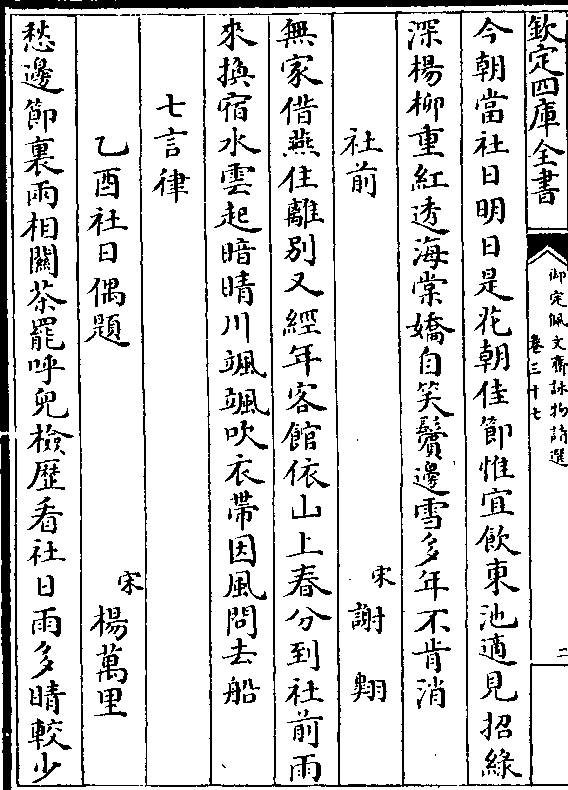 欽定四庫全書
御定佩文齋詠物詩選
卷三十七
二
今朝當社日明日是花朝佳節惟宜飲東池適見招綠
深楊柳重紅透海棠嬌自笑鬢邊雪多年不肯消
社前
宋謝翺
無家借燕住離別又經年客館依山上春分到社前雨
來換宿水雲起暗晴川颯颯吹衣帶因風問去船
七言律
乙酉社日偶題
宋楊萬里
愁邊節裏兩相關茶罷呼兒檢歷看社日雨多晴較少